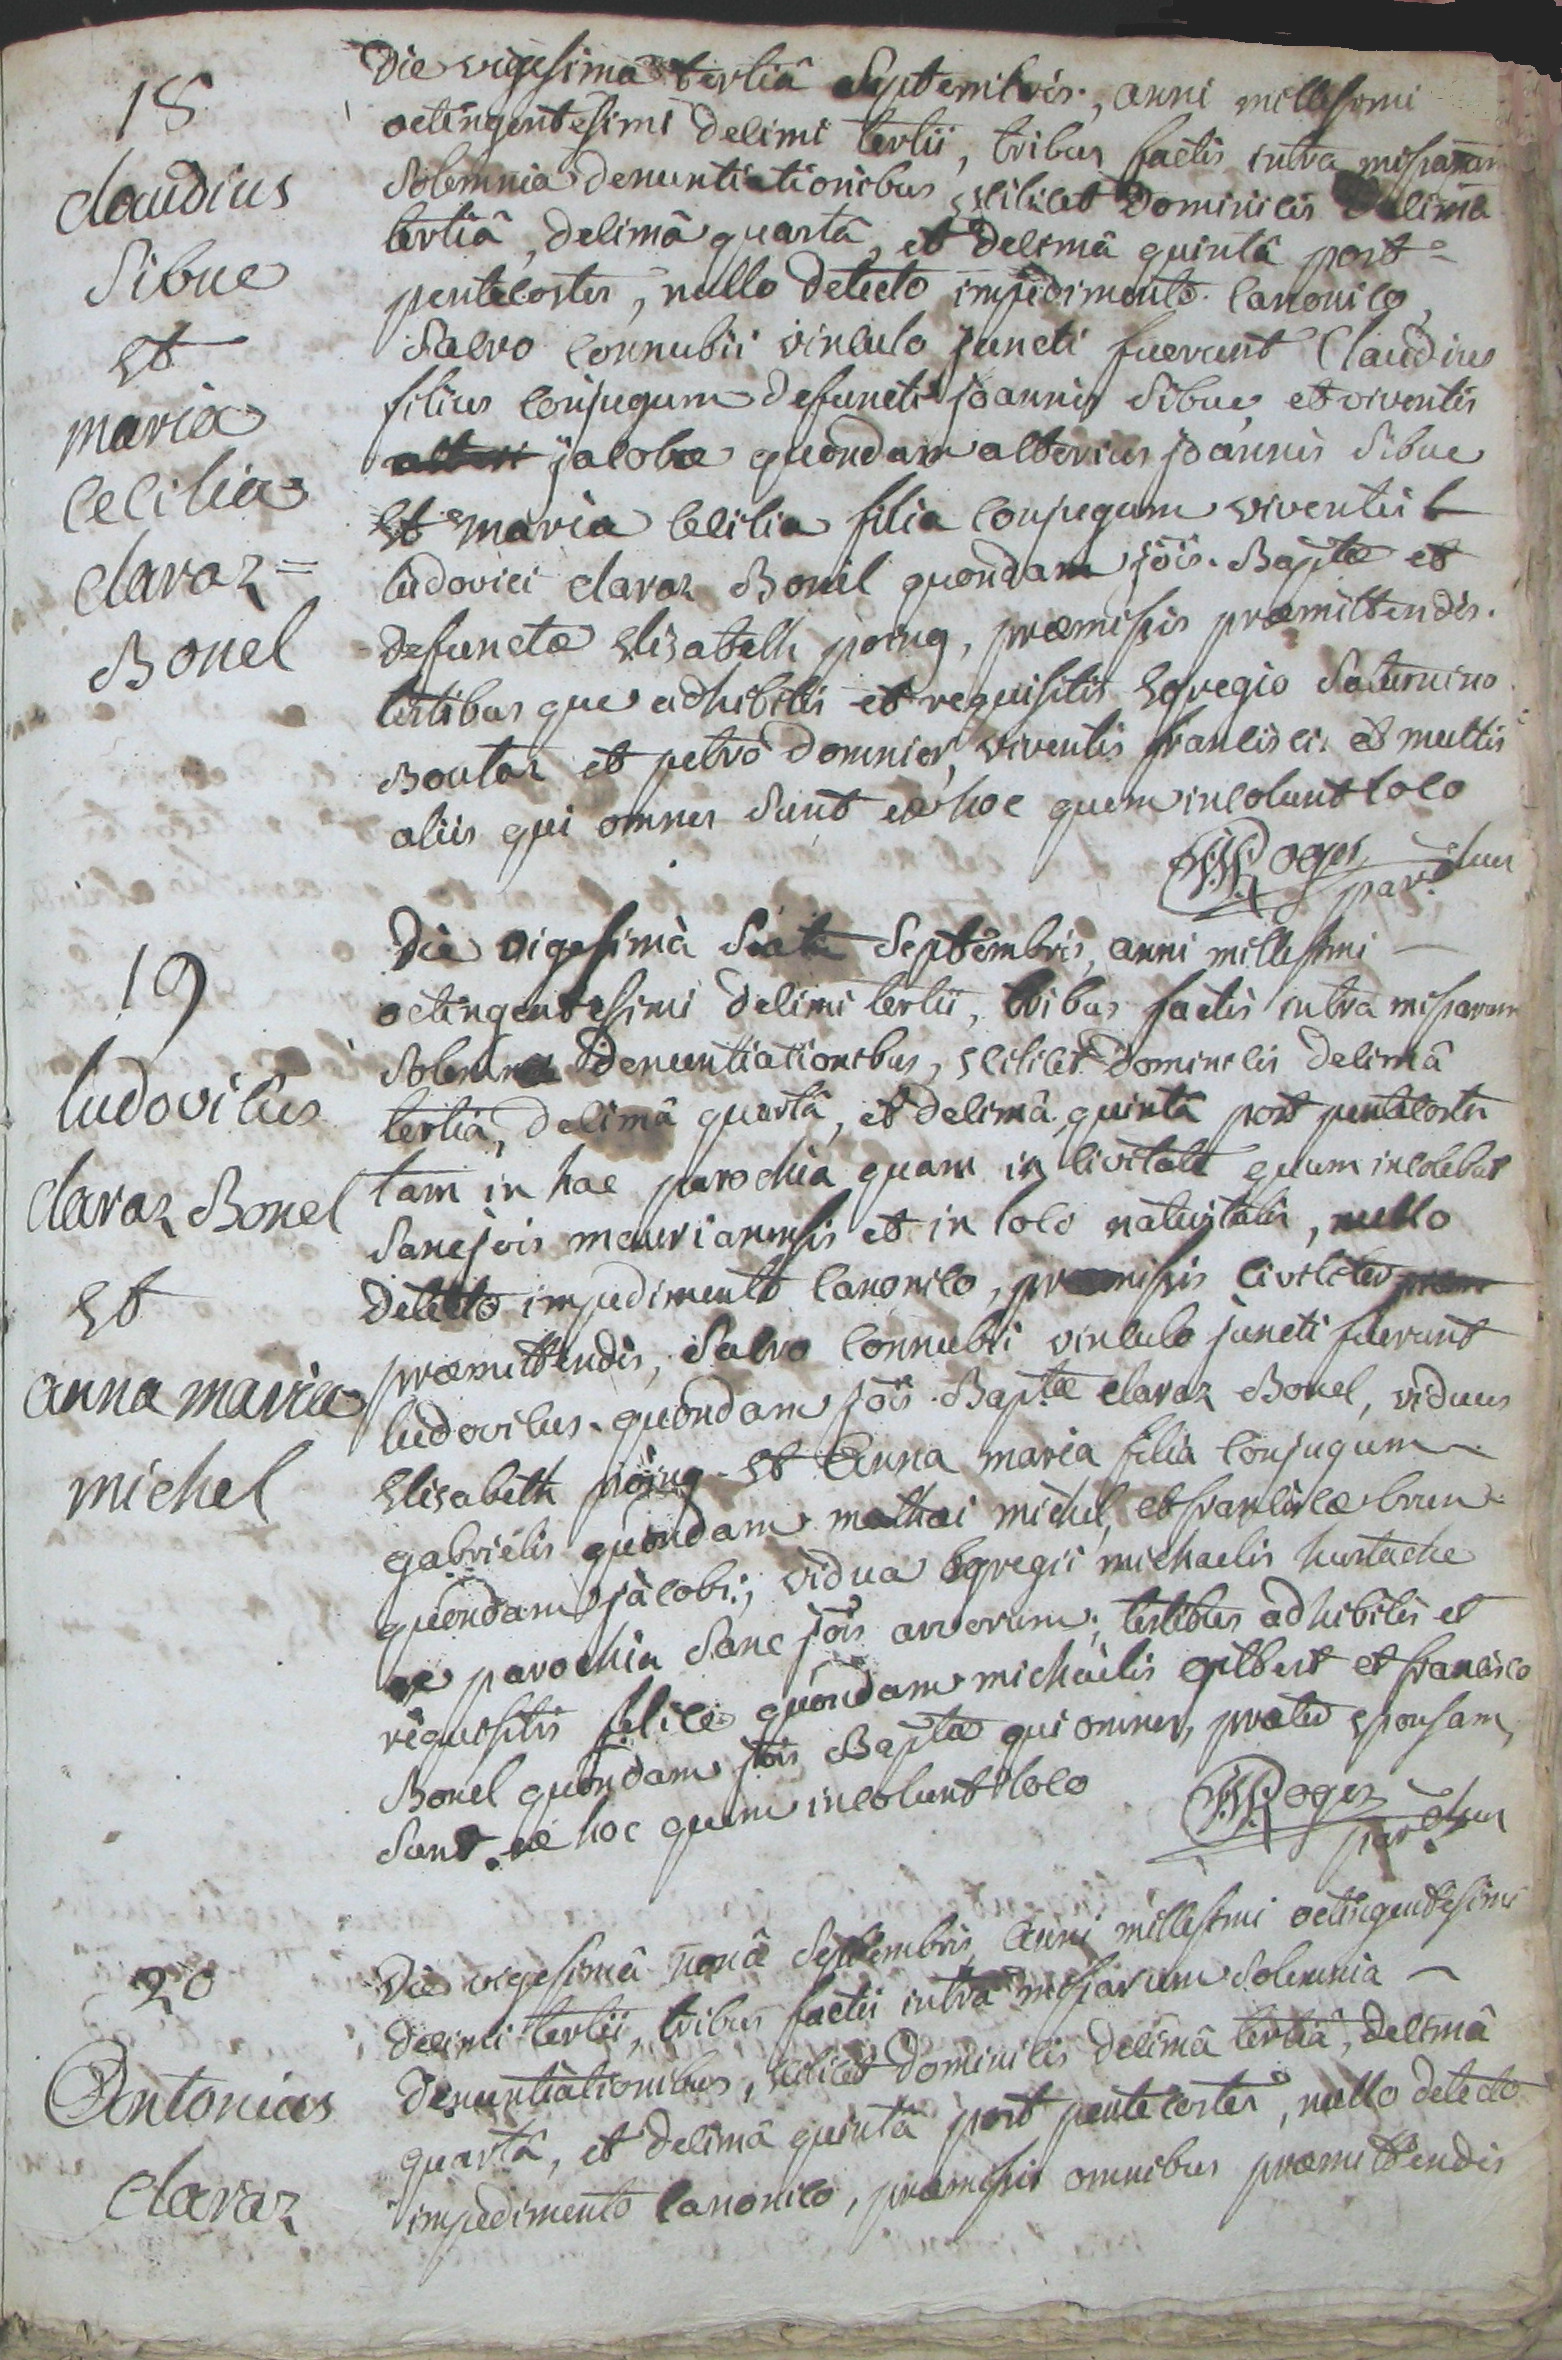 18
Claudius
Sibue
Et
maria
Cecilia
Claraz =
Bonel
Die vigesimâ tertiâ Septembris, anni millesimi
octingentesimi decimi tertii, tribus factis intra missarum
Solemnia denuntiationibus scilicet Dominicis decimâ
tertiâ, decimâ quartâ, et decimâ quintâ post =
pentecostes, nullo detecto impedimento canonico,
Sacro connubii vinculo juncti fuerunt Claudius
filius conjugum defuncti joannis Sibue et viventis
jacobæ quondam alterius joannis Sibue
Et maria Cecilia filia conjugum viventis
ludovici Claraz Bonel quondam jõis. Baptæ et
defunctæ Elisabeth poing, præmissis præmittendis.
testibus que adhibitis et requisitis Egregio Saturnino
Boutaz et petro Domnier, viventis francisci et multis
aliis qui omnes Sunt ex hoc quem incolunt loco
Roger parochus
19
ludovicus
Claraz Bonel
Et
anna maria
michel
Die vigesimâ Sexta Septembris, anni millesimi
octingentesimi decimi tertii, tribus factis intra missarum
Solemnia denuntiationibus, scilicet dominicis decimâ
tertiâ, decimâ quartâ, et decimâ quintâ post pentecostes
tam in hac parochia quam in civitate quam incolebat
Sancj̃ois maurianensis et in loco nativitatis, nullo
detecto impedimento canonico, præmissis civiliter
præmittendis, Sacro connubii vinculo juncti fuerunt
ludovicus quondam jõis Baptæ Claraz Bonel, viduus
Elisabeth poing Et Anna maria filia conjugum
gabriëlis quondam mathæi michel, et franciscæ brun
quondam jacobi, vidua Egregii michaelis hustache
ex parochia Sanc jõis arvorum, testibus adhibitis et
requisitis felice quondam michaëlis gilbert et francisco
Bonel quondam jõis Baptæ qui omnes, præter sponsam,
Sunt ex hoc quem incolunt loco
Roger parochus
20
Antonius
Claraz
Die vigesimâ nonâ Septembris, anni millesimi octingentesimi
decimi tertii, tribus factis intra missarum Solemnia
denuntiationibus, scilicet Dominicis decimâ tertiâ, decimâ
quartâ, et decimâ quintâ post pentecostes, nullo detecto
impedimento canonico, præmissis omnibus præmittendis